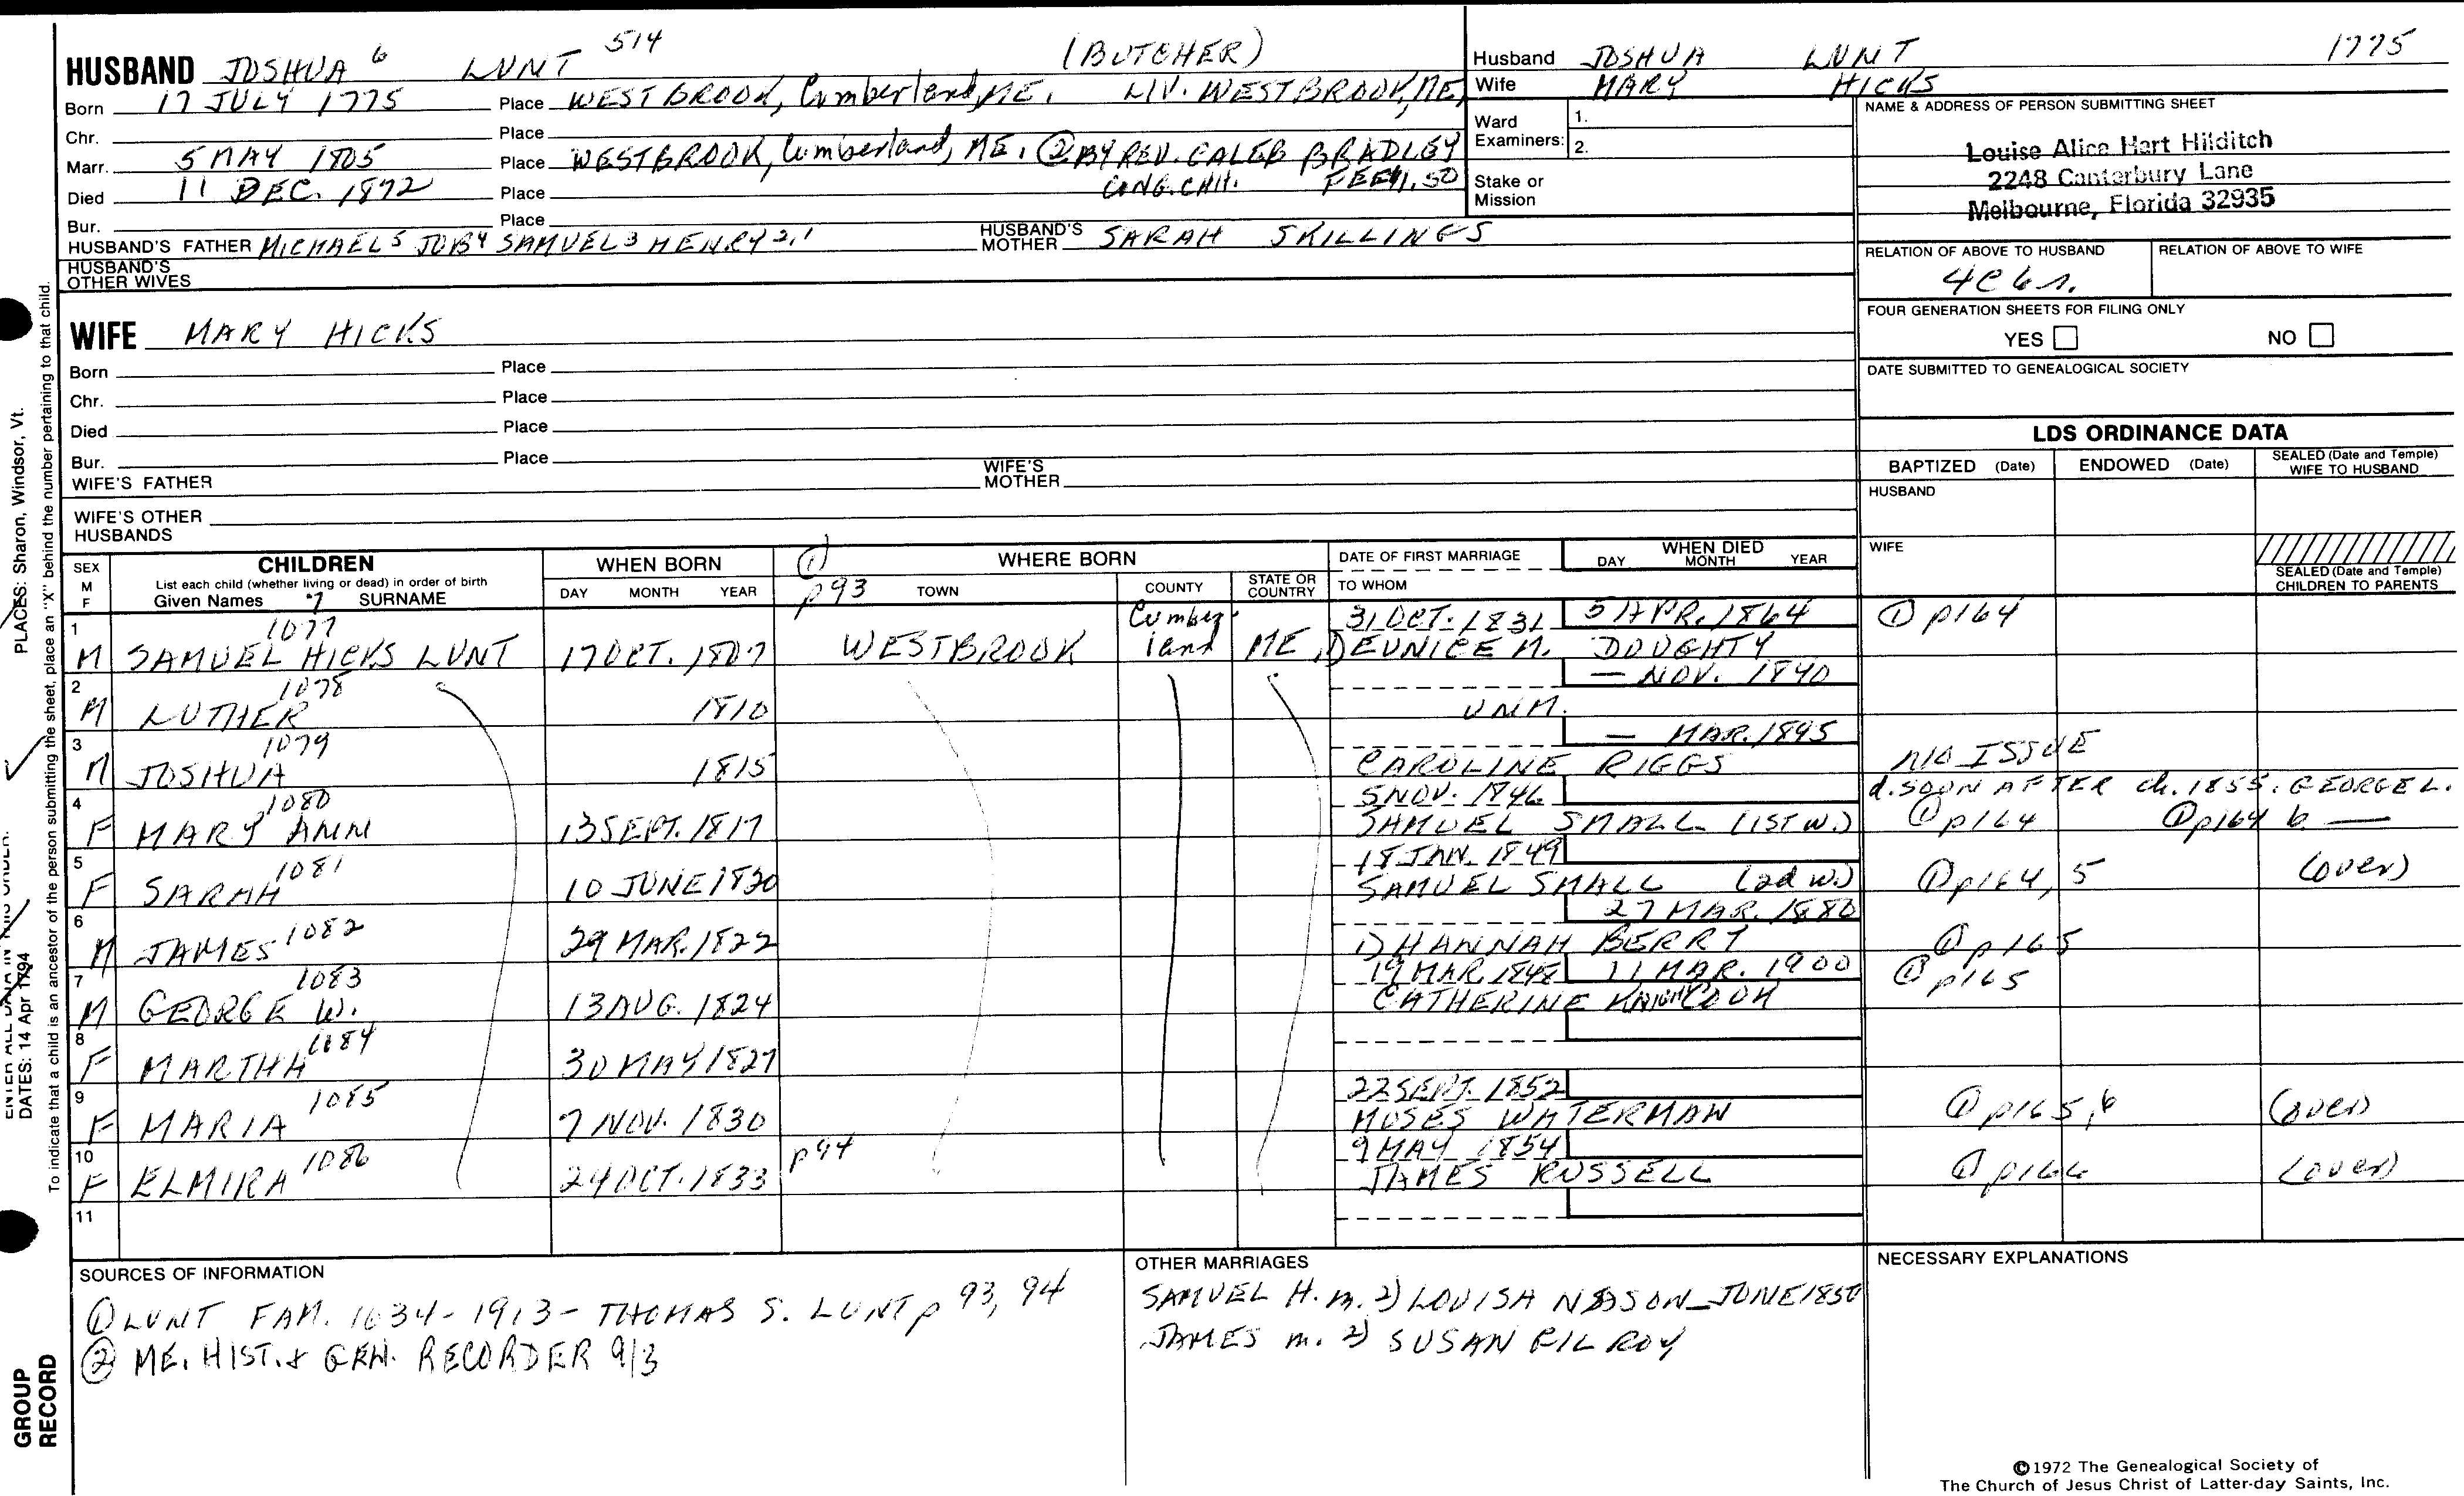 HUSBAND JOSHUA 6 LUNT 514 (BUTCHER)
Born 17 JULY 1775 Place WESTBROOK, Cumberland, ME. LIV. WESTBROOK, ME,
Chr. Place
Marr. 5 MAY 1805 Place WESTBROOK, Cumberland, ME. ② BY REV. CALEB BRADLEY
Died 11 DEC. 1872 Place CONG. CHH. FEE $1.50
Bur. Place
HUSBAND'S FATHER MICHAEL 5 JOB 4 SAMUEL 3 HENRY 2,1 HUSBAND'S MOTHER SARAH SKILLINGS
HUSBAND'S OTHER WIVES
Husband JOSHUA LUNT 1775
Wife MARY HICKS
Ward Examiners: 1.
2.
Stake or Mission
NAME & ADDRESS OF PERSON SUBMITTING SHEET
Louise Alice Hart Hilditch
2248 Canterbury Lane
Melbourne, Florida 32935
RELATION OF ABOVE TO HUSBAND RELATION OF ABOVE TO WIFE
4C6r.
FOUR GENERATION SHEETS FOR FILING ONLY
YES NO
DATE SUBMITTED TO GENEALOGICAL SOCIETY
WIFE MARY HICKS
Born Place
Chr. Place
Died Place
Bur. Place
WIFE'S FATHER WIFE'S MOTHER
WIFE'S OTHER HUSBANDS
LDS ORDINANCE DATA
BAPTIZED (Date) ENDOWED (Date) SEALED (Date and Temple) WIFE TO HUSBAND
HUSBAND
WIFE
SEALED (Date and Temple) CHILDREN TO PARENTS
SEX M F
CHILDREN
List each child (whether living or dead) in order of birth
Given Names *7 SURNAME
WHEN BORN
DAY MONTH YEAR
① p93
WHERE BORN
TOWN COUNTY STATE OR COUNTRY
DATE OF FIRST MARRIAGE
TO WHOM
WHEN DIED
DAY MONTH YEAR
1 1077 Cumber- 31 OCT. 1831 5 APR. 1864 ① p164
M SAMUEL HICKS LUNT 17 OCT. 1807 WESTBROOK land ME 1) EUNICE M. DOUGHTY
2 1078 — NOV. 1840
M LUTHER 1810 UNM.
3 1079 — MAR. 1895
M JOSHUA 1815 CAROLINE RIGGS NO ISSUE
4 1080 5 NOV. 1846 d. SOON AFTER ch. 1855. GEORGE L.
F MARY ANN 13 SEPT. 1817 SAMUEL SMALL (1ST W.) ① p164 ① p164 b. —
5 1081 18 JAN. 1849
F SARAH 10 JUNE 1820 SAMUEL SMALL (2d W.) ① p164, 5 (over)
6 1082 27 MAR. 1880
M JAMES 29 MAR. 1822 1) HANNAH BERRY ① p165
7 1083 19 MAR. 1848 11 MAR. 1900 ① p165
M GEORGE W. 13 AUG. 1824 CATHERINE KNIGHT COOK
8 1084
F MARTHA 30 MAY 1827
9 1085 22 SEPT. 1852
F MARIA 7 NOV. 1830 MOSES WATERMAN ① p165, 6 (over)
10 1086 p94 9 MAY 1854
F ELMIRA 24 OCT. 1833 JAMES RUSSELL ① p166 (over)
11
SOURCES OF INFORMATION
① LUNT FAM. 1634-1913 - THOMAS S. LUNT p 93, 94
② ME. HIST. & GEN. RECORDER 9/3
OTHER MARRIAGES
SAMUEL H. m. 2) LOUISA NASON JUNE 1850
JAMES m. 2) SUSAN
NECESSARY EXPLANATIONS
©1972 The Genealogical Society of
The Church of Jesus Christ of Latter-day Saints, Inc.
PLACES: Sharon, Windsor, Vt.
ENTER ALL DATA IN THIS ORDER:
DATES: 14 Apr 1794
To indicate that a child is an ancestor of the person submitting the sheet, place an "X" behind the number pertaining to that child.
GROUP
RECORD